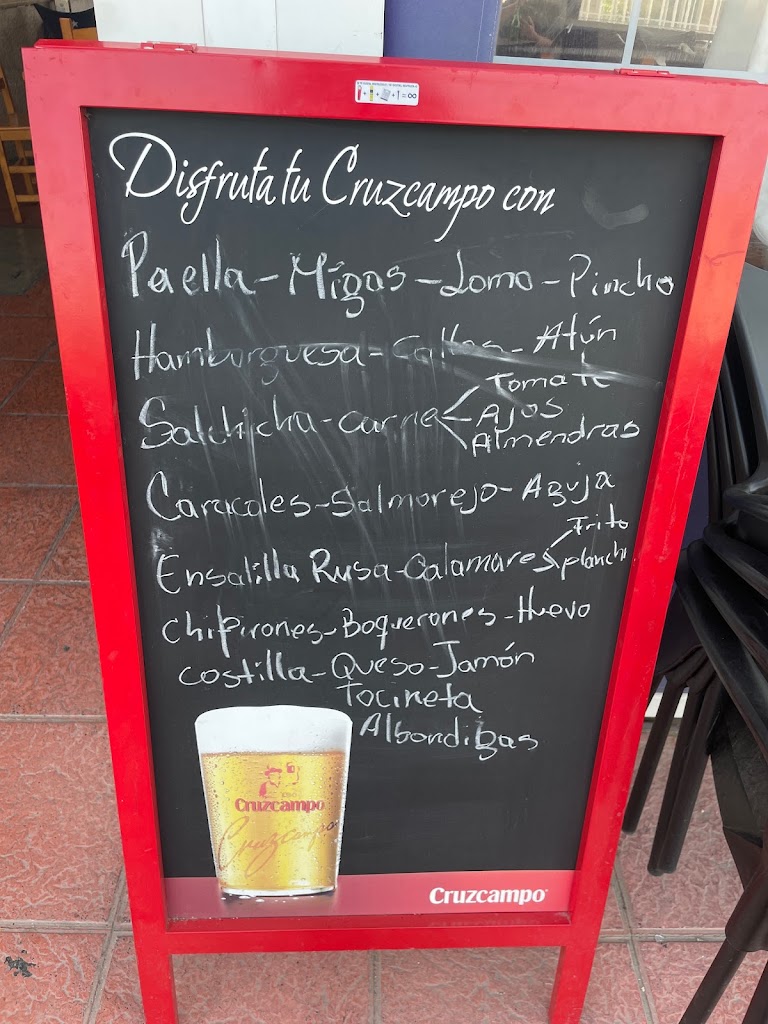 Disfruta tu Cruzcampo con
Paella - Migas - Lomo - Pincho
Hamburguesa - Callos - Atún
Salchicha - carne
Tomate
Ajos
Almendras
Caracoles - Salmorejo - Aguja
Ensalilla Rusa - Calamares
Frito
plancha
Chipirones - Boquerones - Huevo
costilla - Queso - Jamón
Tocineta
Albondigas
Cruzcampo
Cruzcampo
Cruzcampo